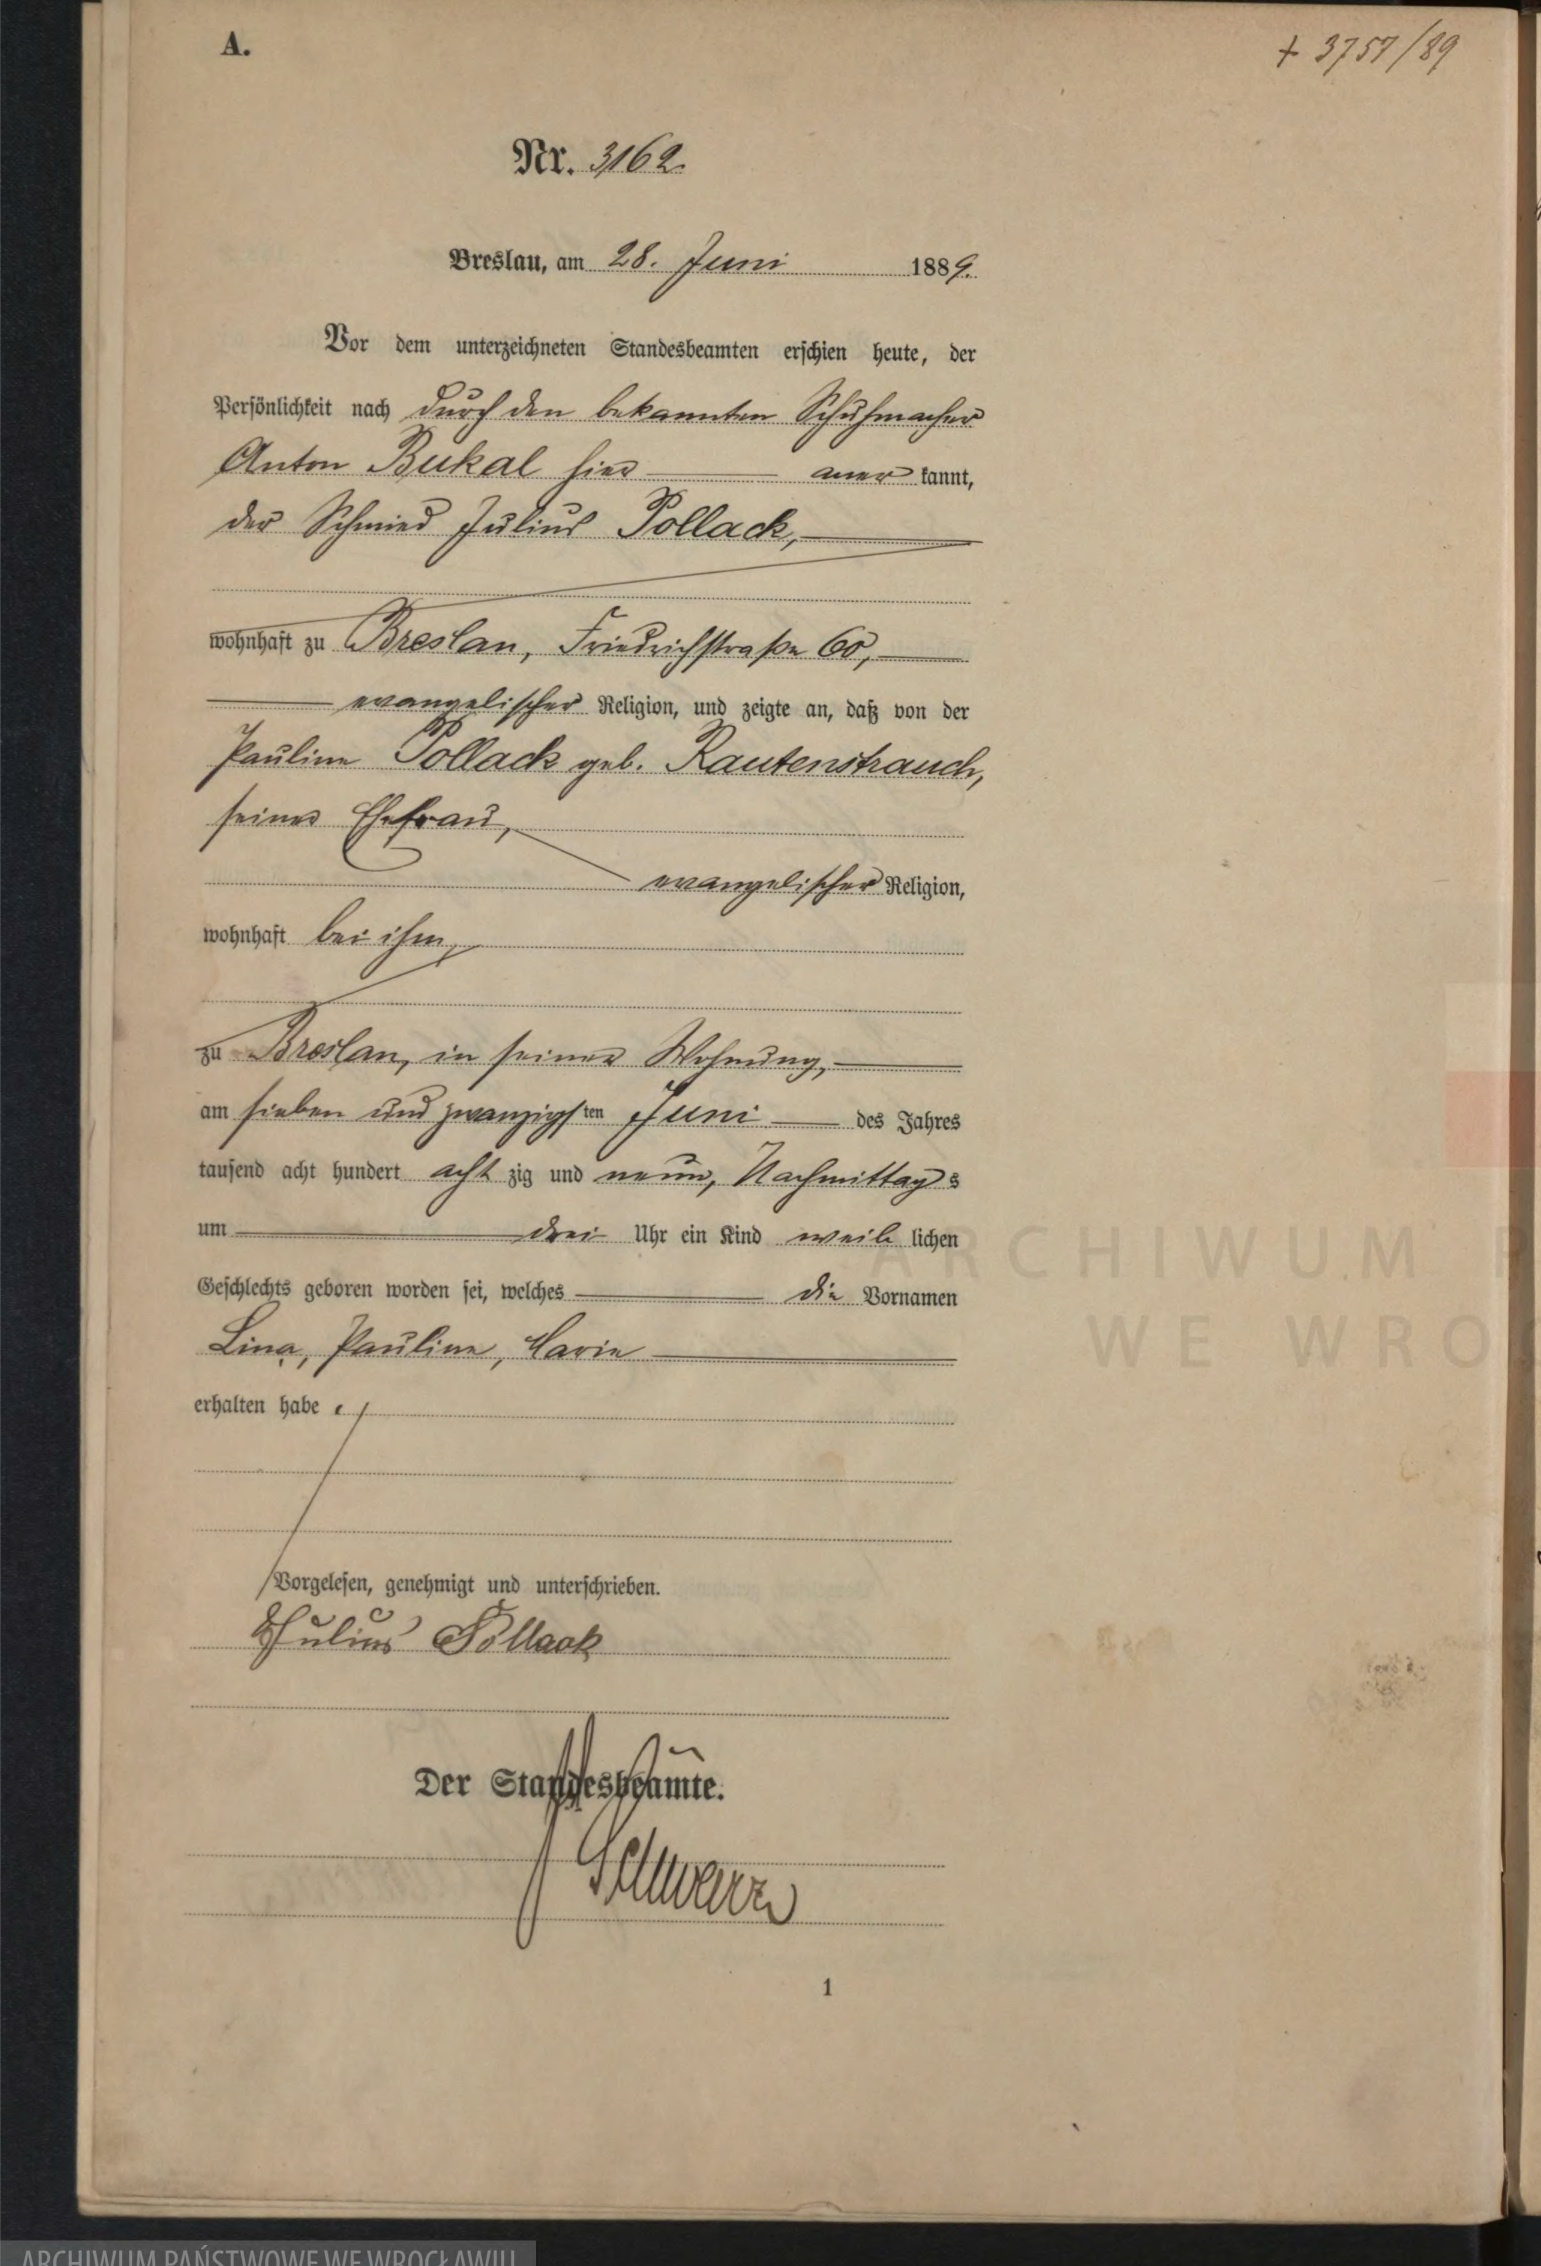 A.
+ 3757/89
Nr. 3162.
Breslau, am 28. Juni 1889.
Vor dem unterzeichneten Standesbeamten erschien heute, der
Persönlichkeit nach durch den bekannten Schuhmacher
Anton Bukal hier aner kannt,
der Schmied Julius Pollack,
wohnhaft zu Breslau, Friedrichstraße 60,
evangelischer Religion, und zeigte an, daß von der
Pauline Pollack geb. Rautenstrauch,
seiner Ehefrau,
evangelischer Religion,
wohnhaft bei ihm,
zu Breslau, in seiner Wohnung,
am sieben und zwanzigsten Juni des Jahres
tausend acht hundert acht zig und neun, Nachmittags
um drei Uhr ein Kind weib lichen
Geschlechts geboren worden sei, welches die Vornamen
Lina, Pauline, Marie
erhalten habe.
Vorgelesen, genehmigt und unterschrieben.
Julius Pollack
Der Standesbeamte.
Schwarz
1
ARCHIWUM P
WE WROC
ARCHIWUM PAŃSTWOWE WE WROCŁAWIU